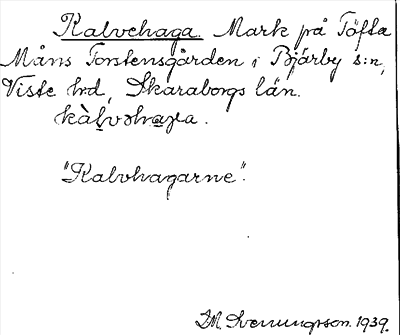 Kalvehaga. Mark på Töfta
Måns Torstensgården i Bjärby s:n,
Viste hd, Skaraborgs län.
kàḷvəhaga.
"Kalvhagarne".
1939.